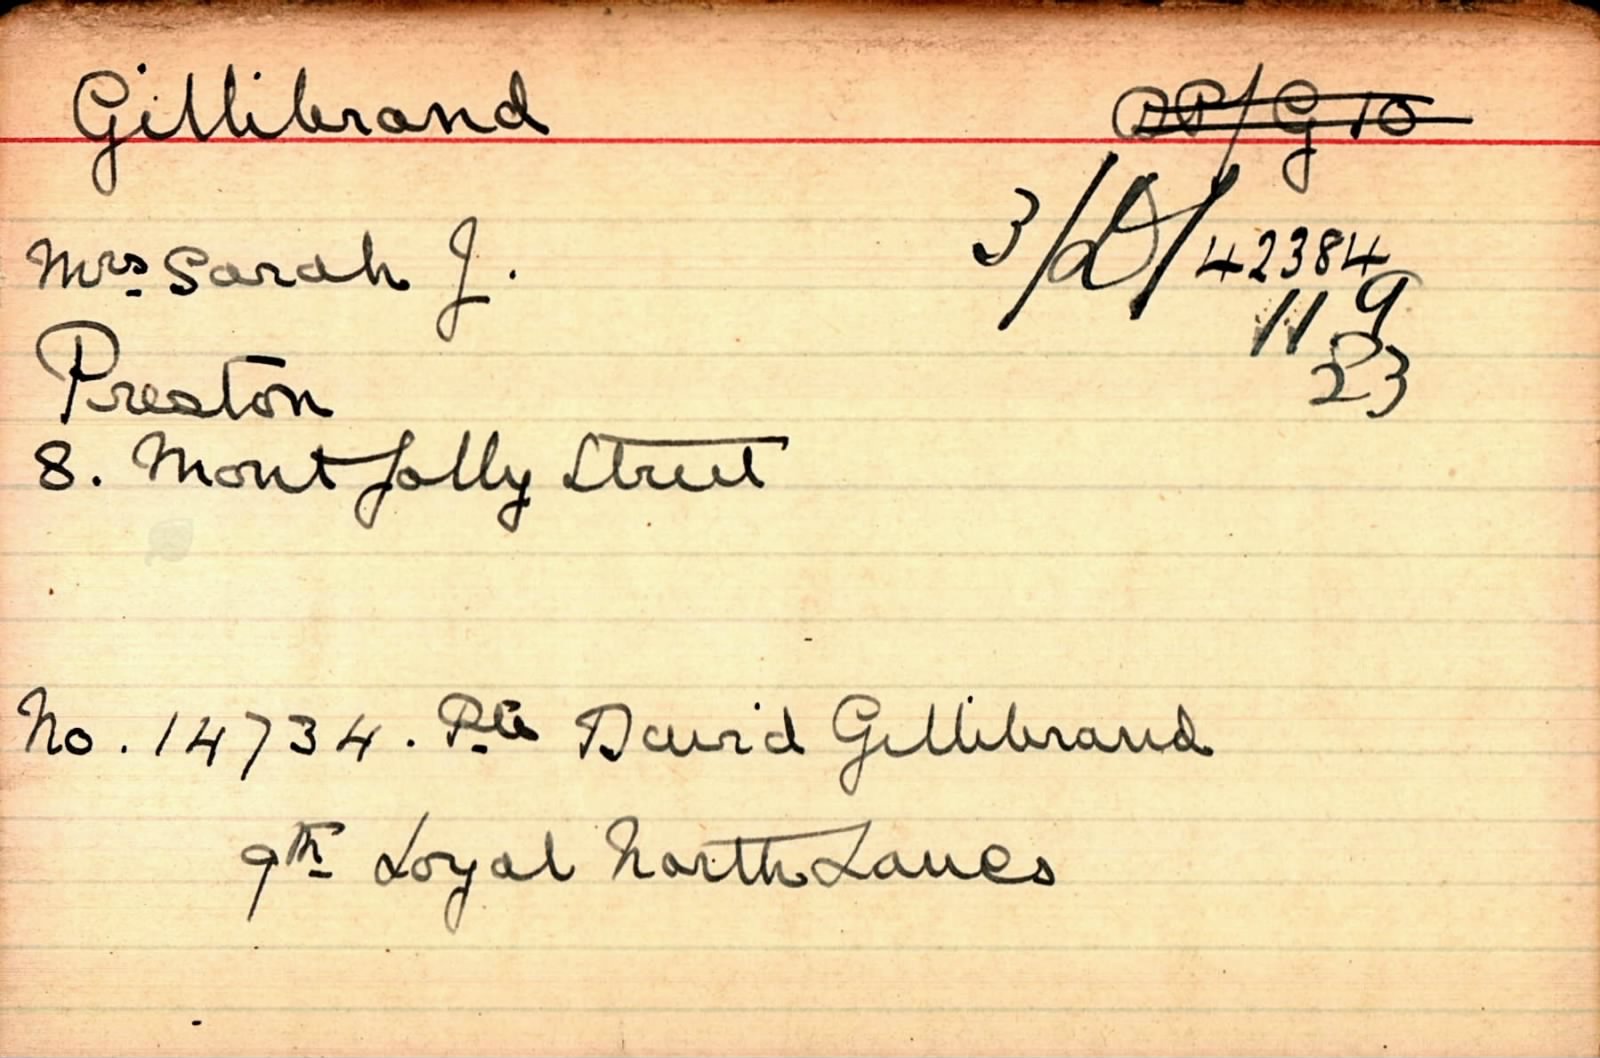 Gillibrand
DP/G 10
Mrs Sarah J.
3/D/42384
119
23
Preston
8. Mont Jolly Street
No. 14734. Pte David Gillibrand
9th Loyal North Lancs